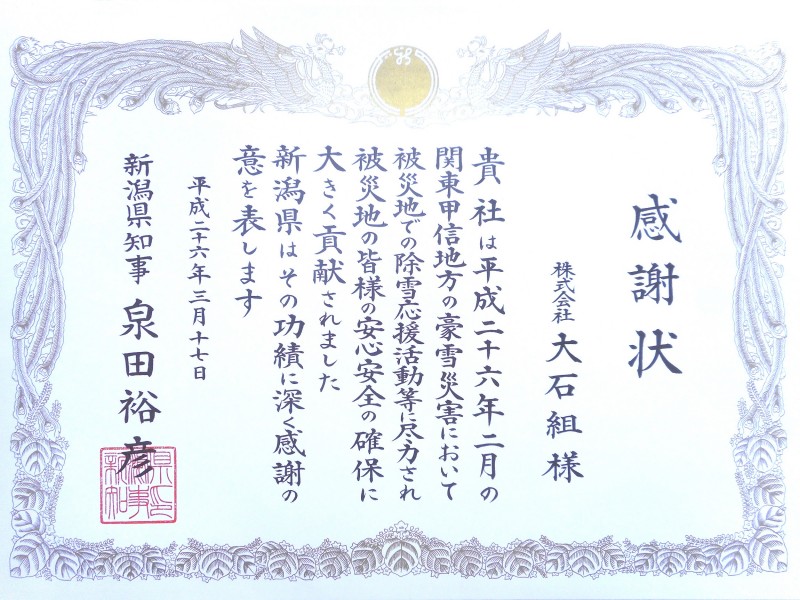 感謝状
株式会社 大石組様
貴社は平成二十六年二月の
関東甲信地方の豪雪災害において
被災地での除雪応援活動等に尽力され
被災地の皆様の安心安全の確保に
大きく貢献されました
新潟県はその功績に深く感謝の
意を表します
平成二十六年三月十七日
新潟県知事 泉田裕彦
新潟県知事之印